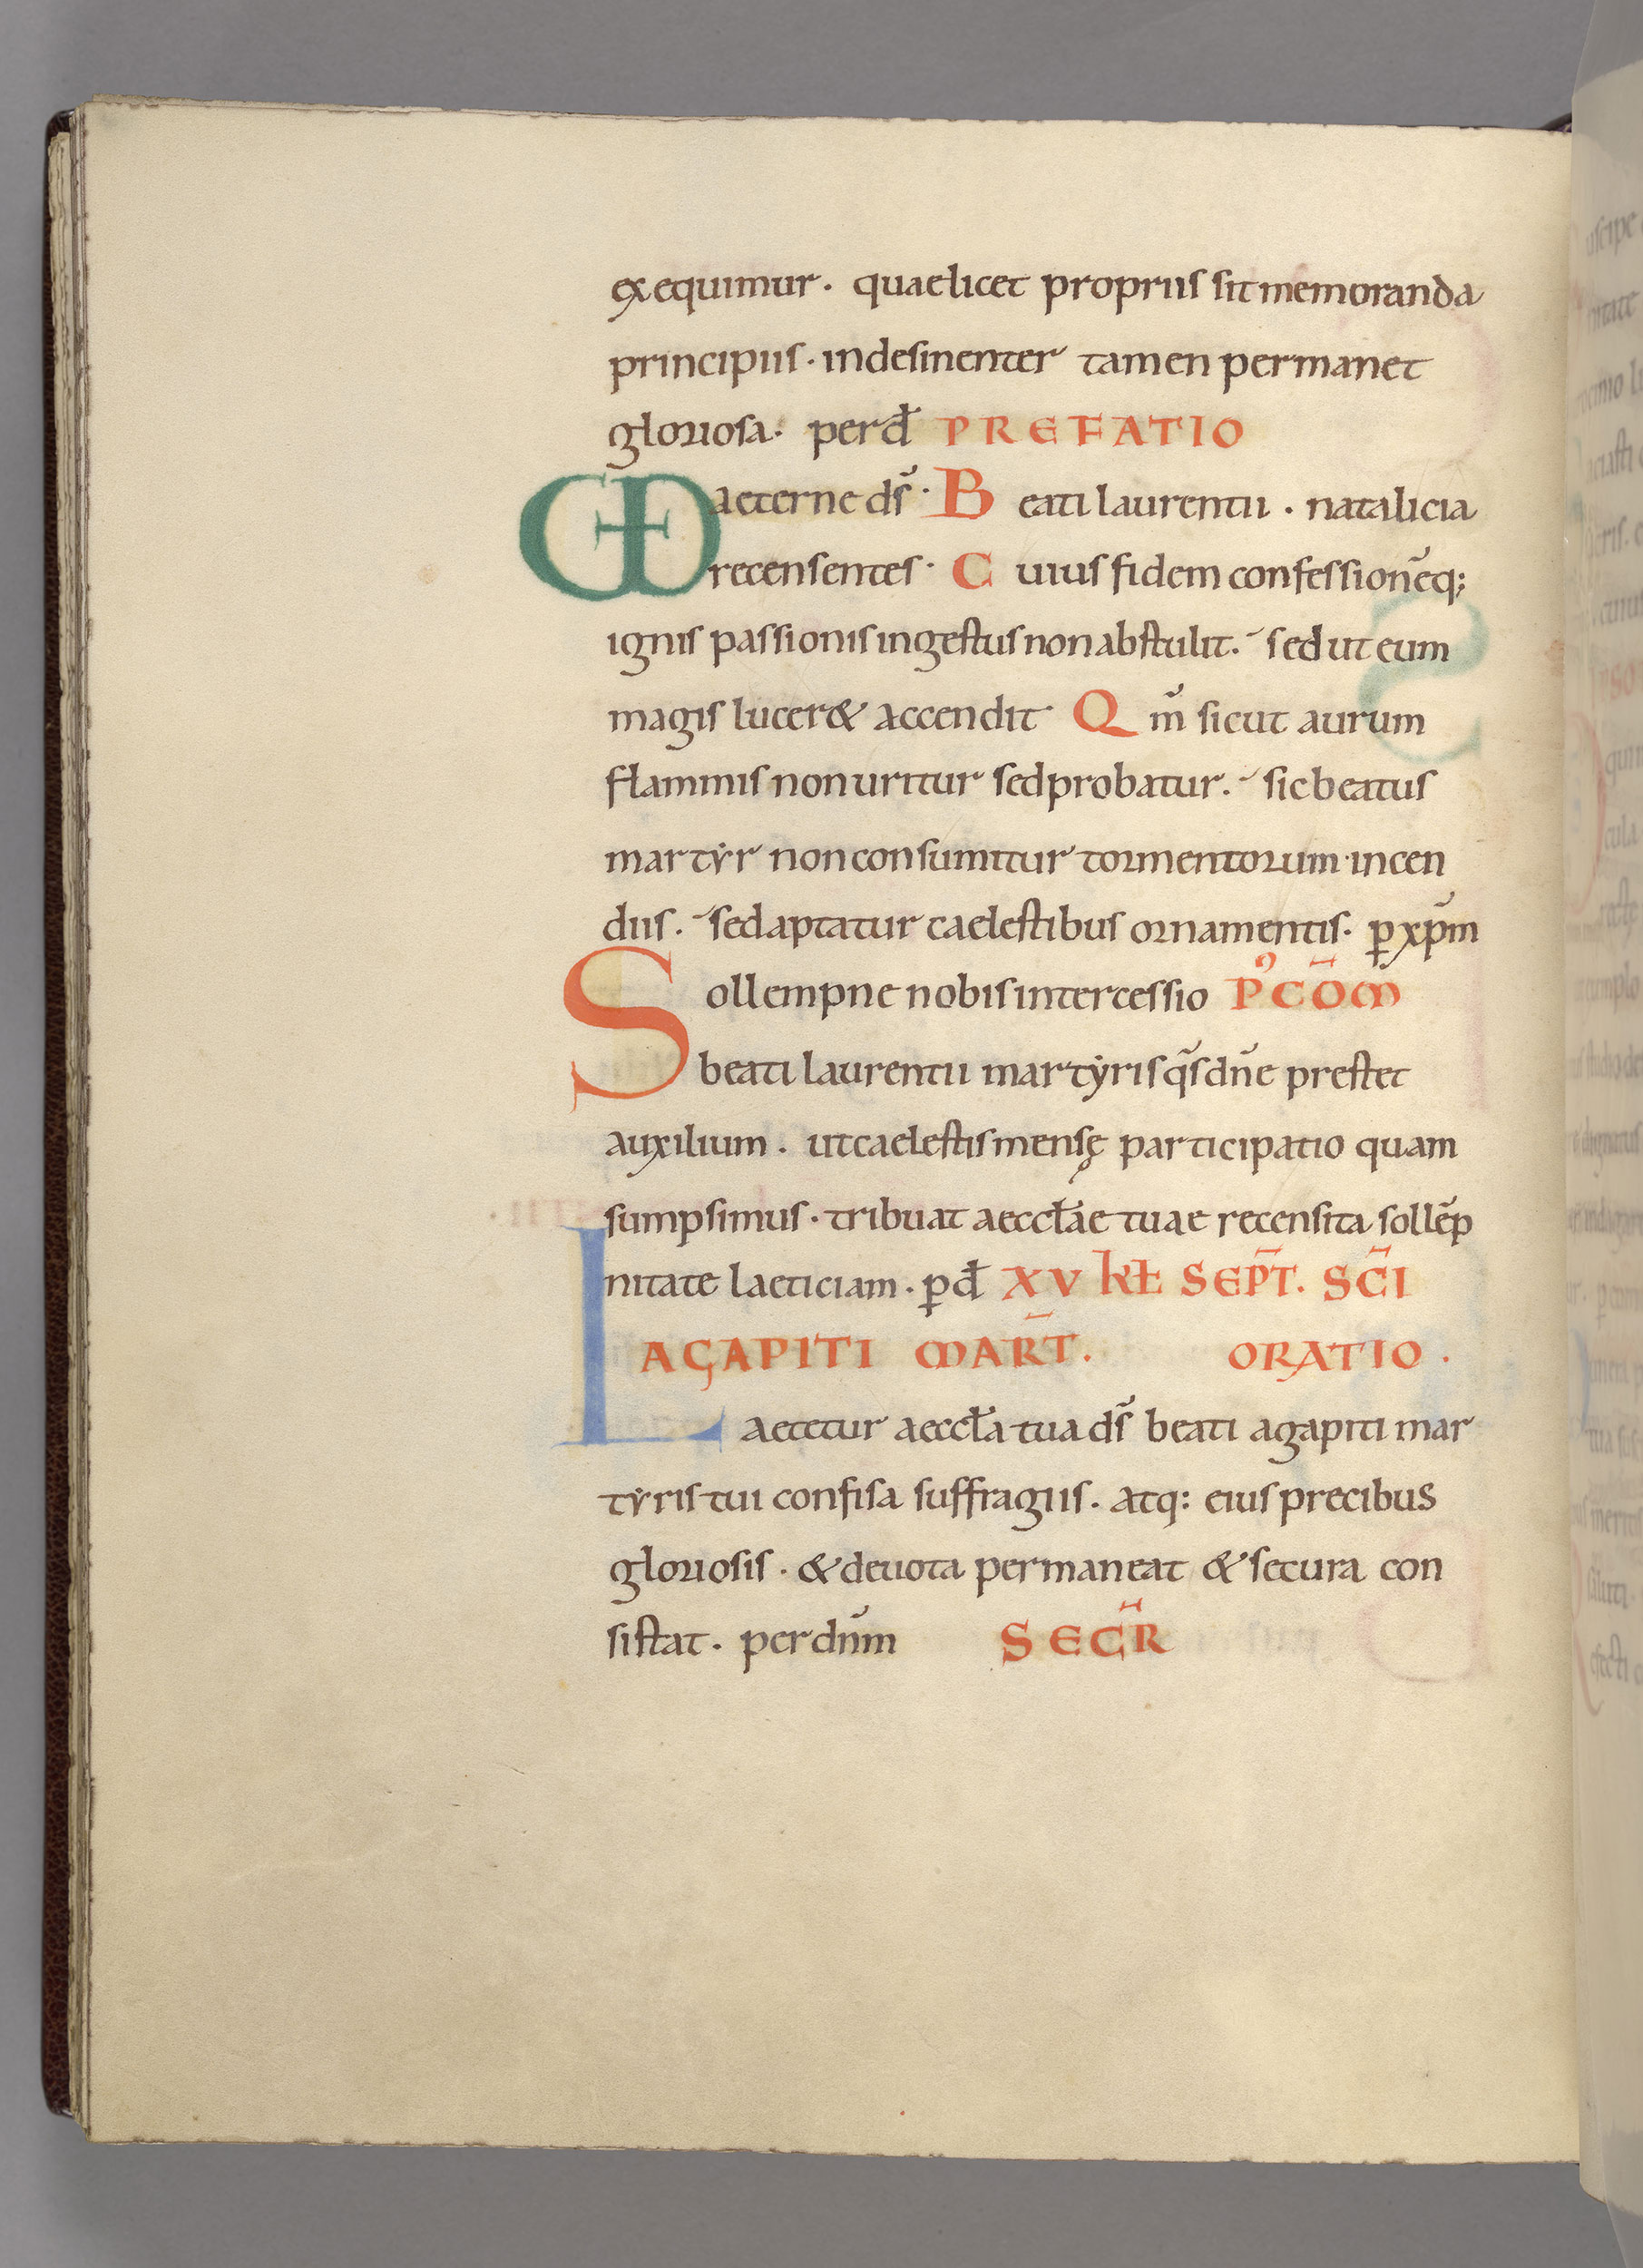 exequimur. quae licet propriis sit memoranda
principiis. indesinenter tamen permanet
gloriosa. per dł PREFATIO
VD aeterne ds̄. Beati laurentii. natalicia
recensentes. Cuius fidem confessionēq;
ignis passionis ingestus non abstulit. sed ut eum
magis lucer& accendit Qm̄ sicut aurum
flammis non uritur sed probatur. sic beatus
martẏr non consumitur tormentorum incen
diis. sed aptatur caelestibus ornamentis. ꝑ xp̄m
Sollempne nobis intercessio P' CŌM
beati laurentii martẏris q̄s dn̄e prestet
auxilium. ut caelestis mensę participatio quam
sumpsimus. tribuat aeccłae tuae recensita sollēp
nitate laeticiam. ꝑ dł XV KŁ SEPT̄. SC̄I
AGAPITI MAR̄T. ORATIO.
Laetetur aeccła tua ds̄ beati agapiti mar
tẏris tui confisa suffragiis. atq: eius precibus
gloriosis. & deuota permaneat & secura con
sistat. per dn̄m SECR̄